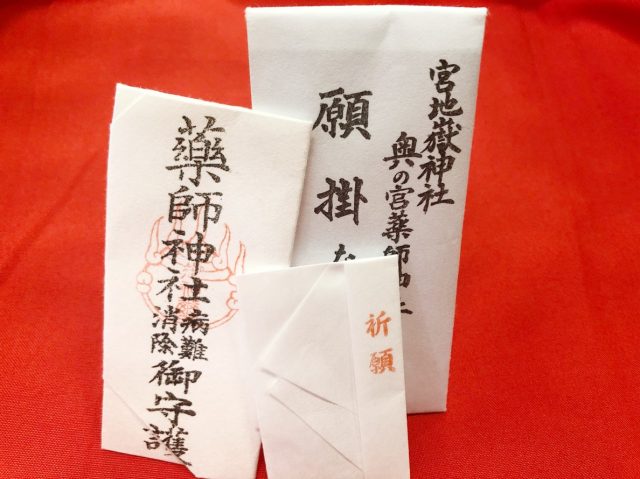 宮地嶽神社
奥の宮薬師神社
願掛な
薬師神社病難消除御守護
祈願